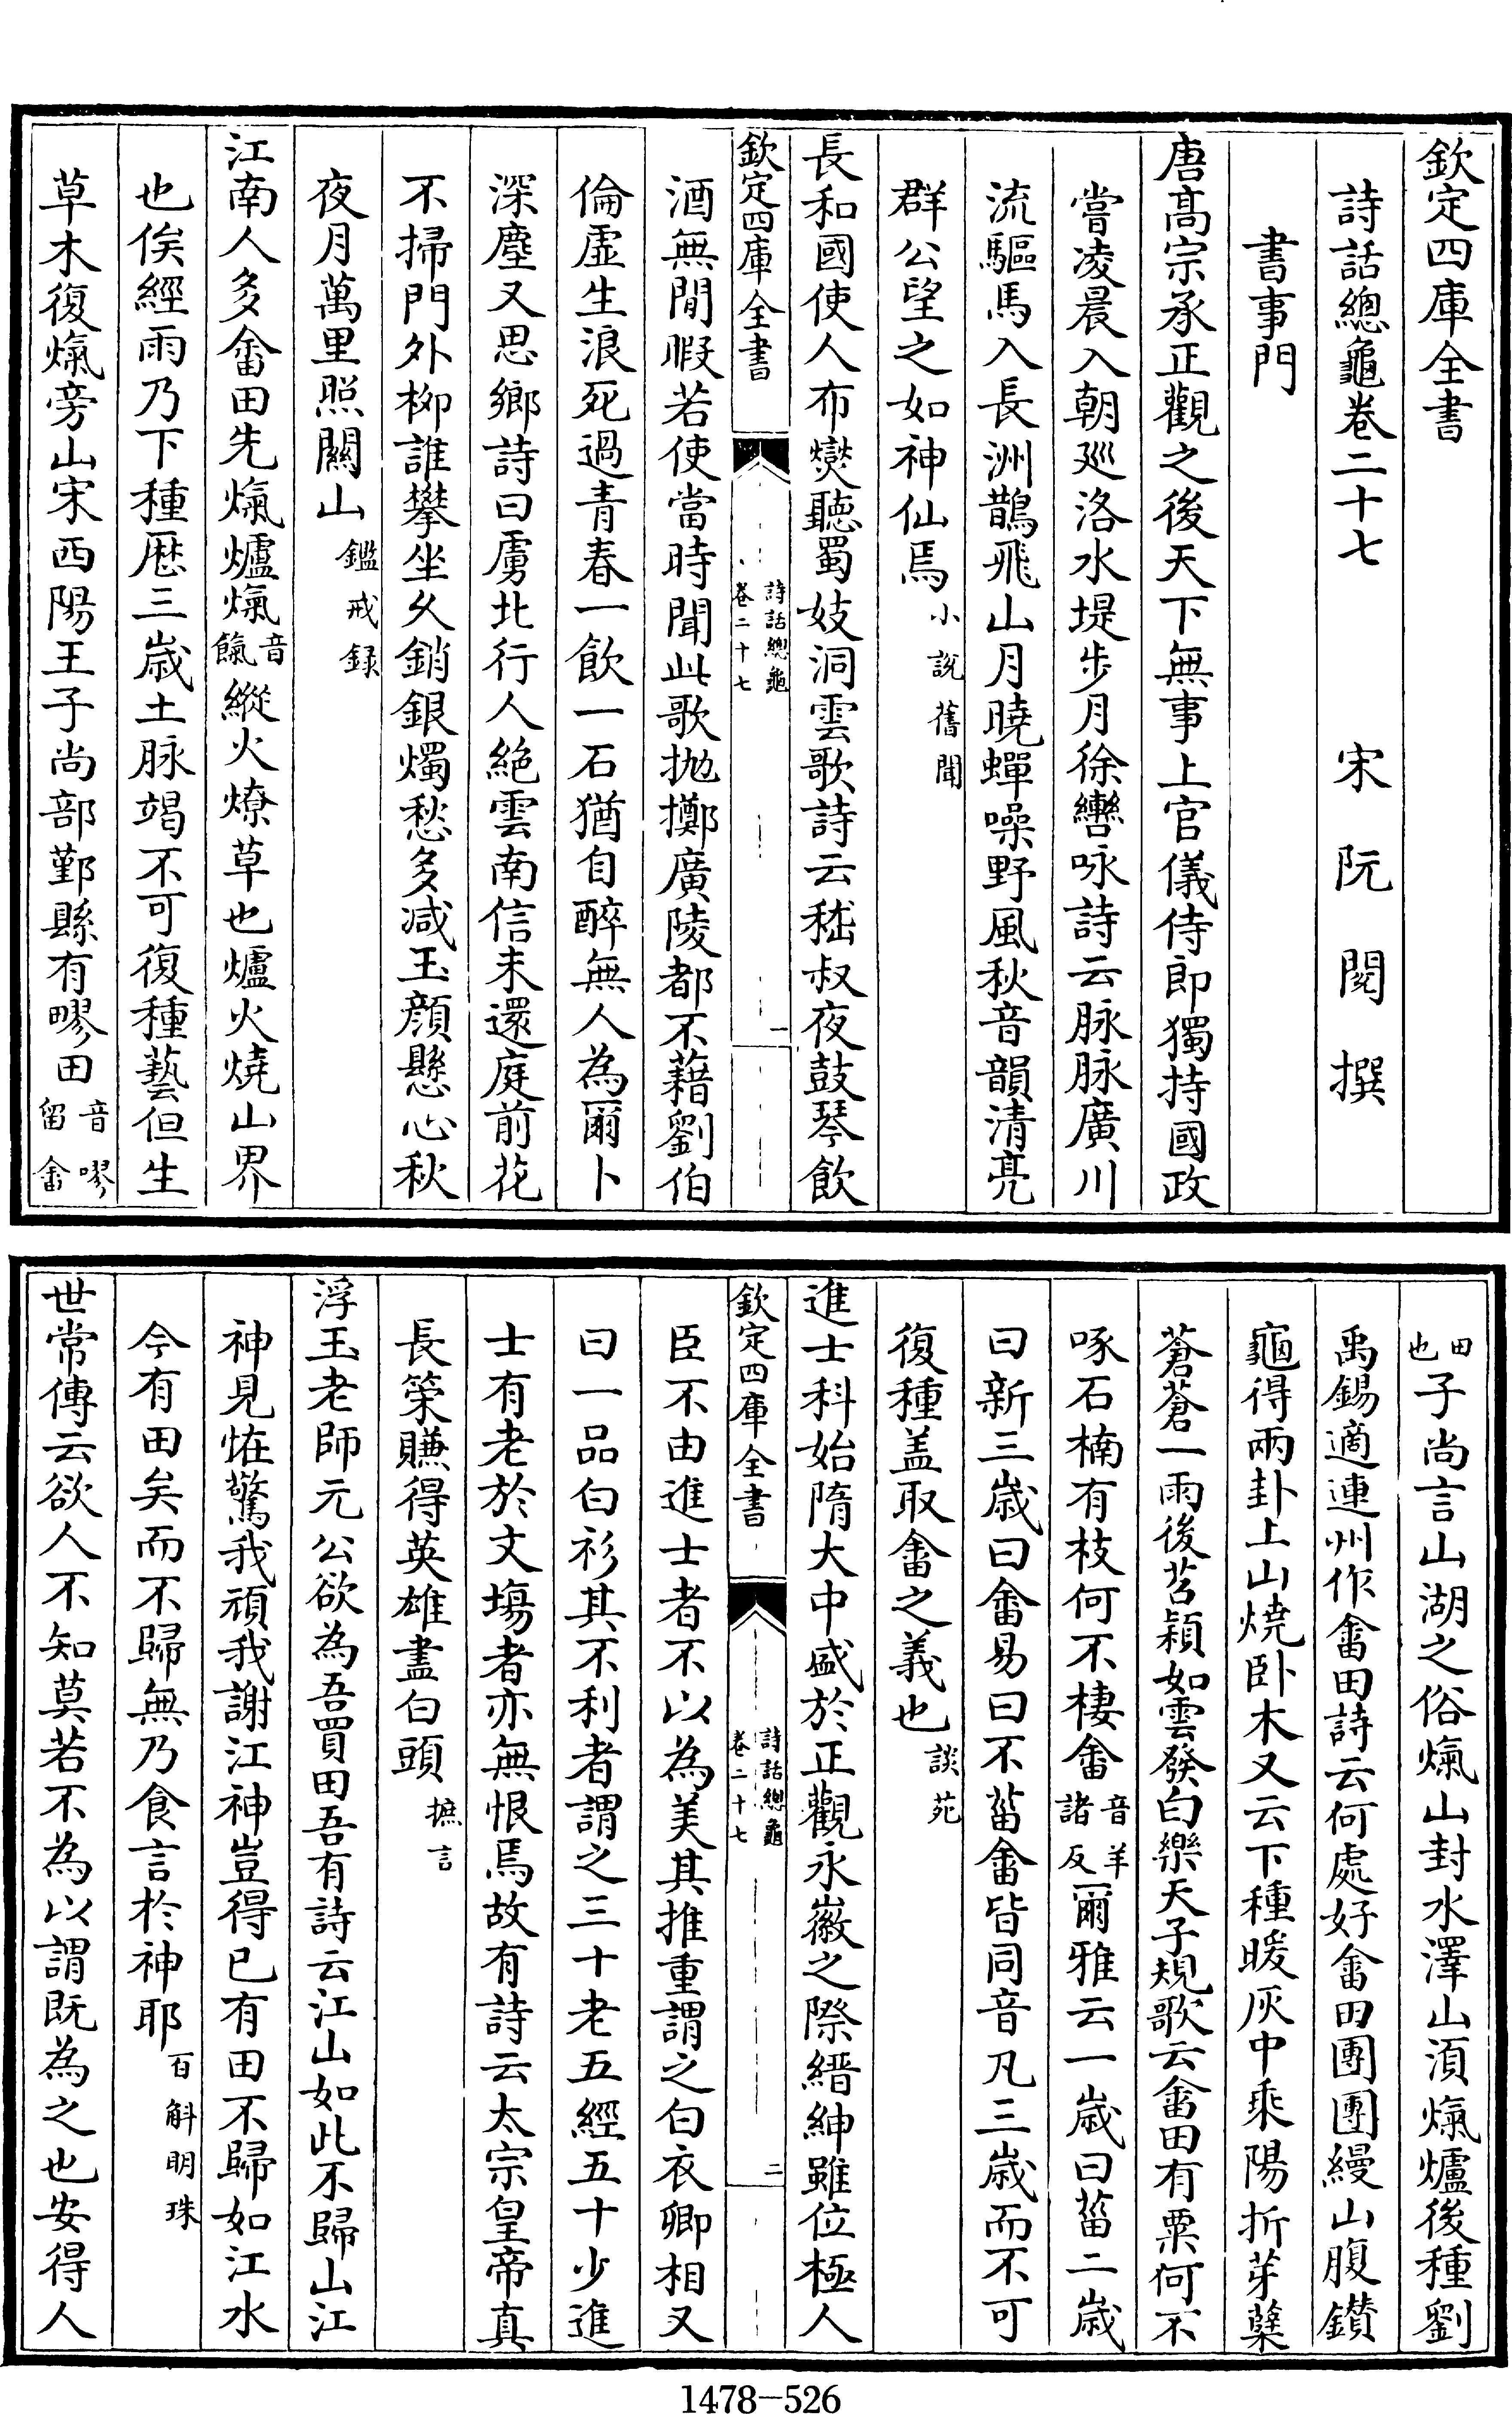 欽定四庫全書
詩話總龜卷二十七　宋　阮閱　撰
書事門
唐高宗承正觀之後天下無事上官儀侍郎獨持國政
嘗凌晨入朝廵洛水堤步月徐轡咏詩云脉脉廣川
流驅馬入長洲鵲飛山月曉蟬噪野風秋音韻清亮
群公望之如神仙焉小說舊聞
長和國使人布爕聽蜀妓洞雲歌詩云嵇叔夜鼓琴飲
欽定四庫全書
詩話總龜
卷二十七
一
酒無閒暇若使當時聞此歌拋擲廣陵都不藉劉伯
倫虛生浪死過青春一飲一石猶自醉無人為爾卜
深塵又思鄉詩曰虜北行人絶雲南信未還庭前花
不掃門外柳誰攀坐久銷銀燭愁多減玉顔懸心秋
夜月萬里照關山鑑戒録
江南人多畬田先熂爐熂音餼縱火燎草也爐火燒山界
也俟經雨乃下種歴三歲土脉竭不可復種藝但生
草木復熂旁山宋西陽王子尚部鄞縣有疁田音嘐留畬
田也子尚言山湖之俗熂山封水澤山湏熂爐後種劉
禹錫適連州作畬田詩云何處好畬田團團縵山腹鑽
龜得兩卦上山燒卧木又云下種暖灰中乘陽折芽蘖
蒼蒼一雨後苕穎如雲發白樂天子規歌云畬田有粟何不
啄石楠有枝何不棲畬音羊諸反爾雅云一歲曰菑二歲
曰新三歲曰畬易曰不菑畬皆同音凡三歲而不可
復種盖取畬之義也談苑
進士科始隋大中盛於正觀永徽之際縉紳雖位極人
欽定四庫全書
詩話總龜
卷二十七
二
臣不由進士者不以為美其推重謂之白衣卿相又
曰一品白衫其不利者謂之三十老五經五十少進
士有老於文塲者亦無恨焉故有詩云太宗皇帝真
長策賺得英雄盡白頭摭言
浮玉老師元公欲為吾買田吾有詩云江山如此不歸山江
神見怪驚我頑我謝江神豈得已有田不歸如江水
今有田矣而不歸無乃食言於神耶百斛明珠
世常傳云欲人不知莫若不為以謂既為之也安得人
1478-526